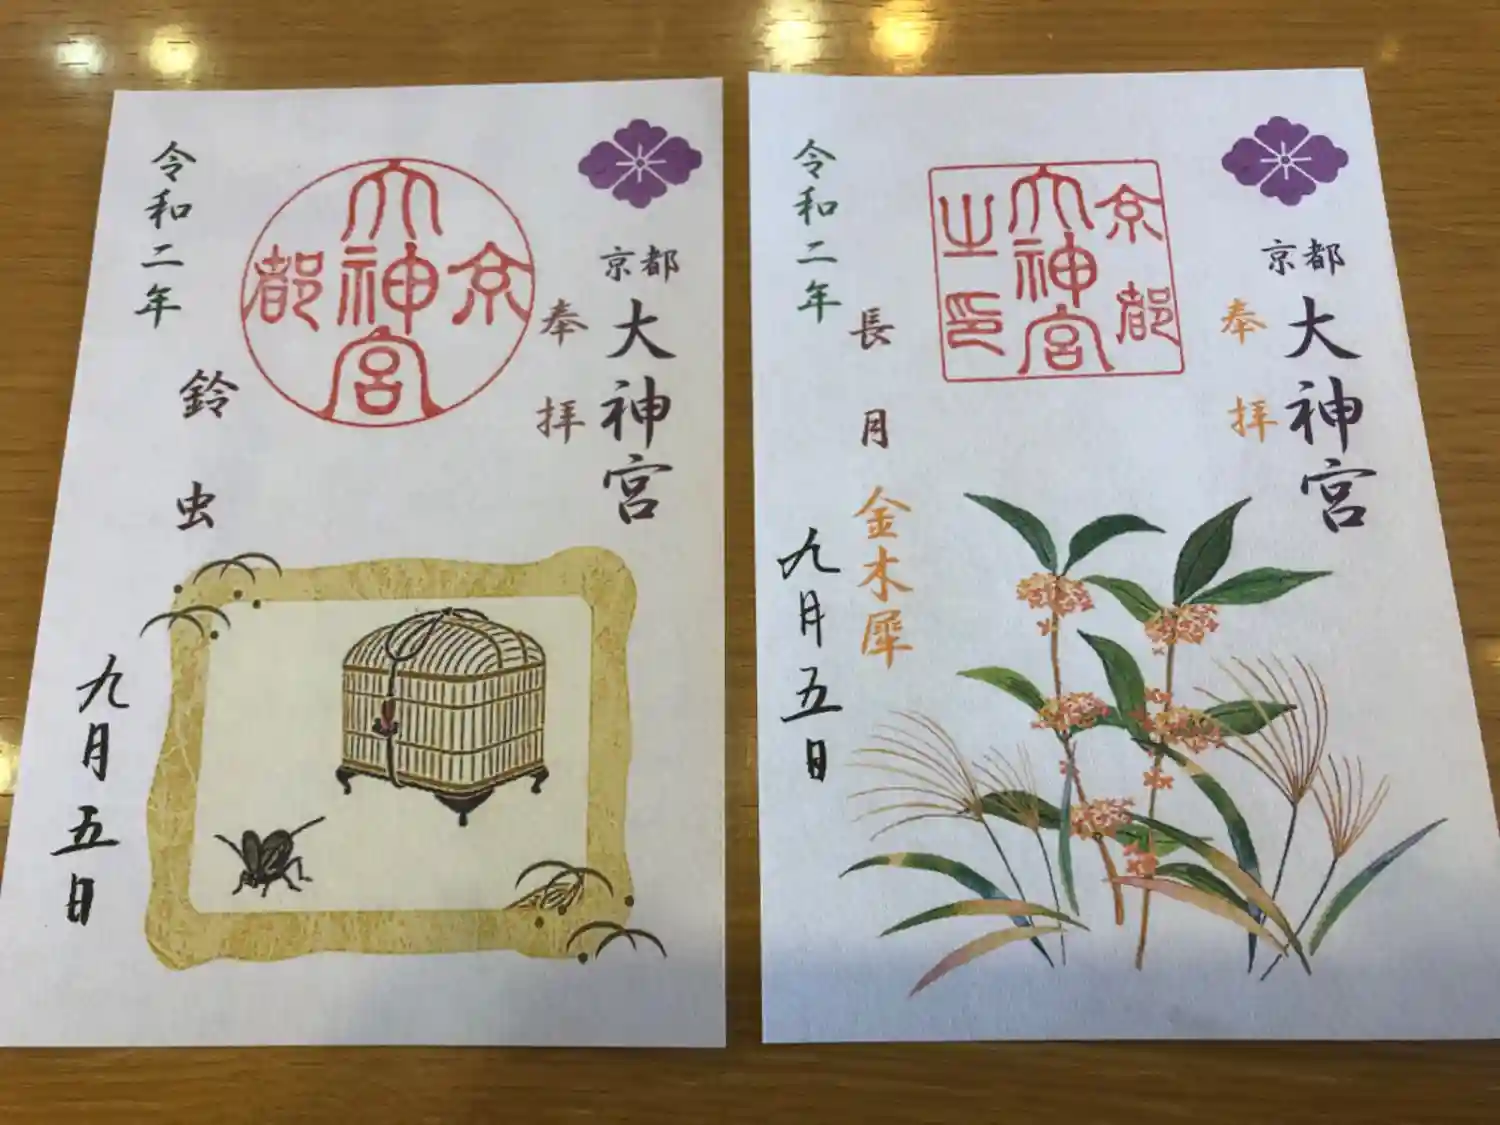 京都
大神宮
奉拝
京都大神宮
令和二年
鈴虫
九月五日
京都
大神宮
奉拝
京都大神宮之印
長月
金木犀
令和二年
九月五日